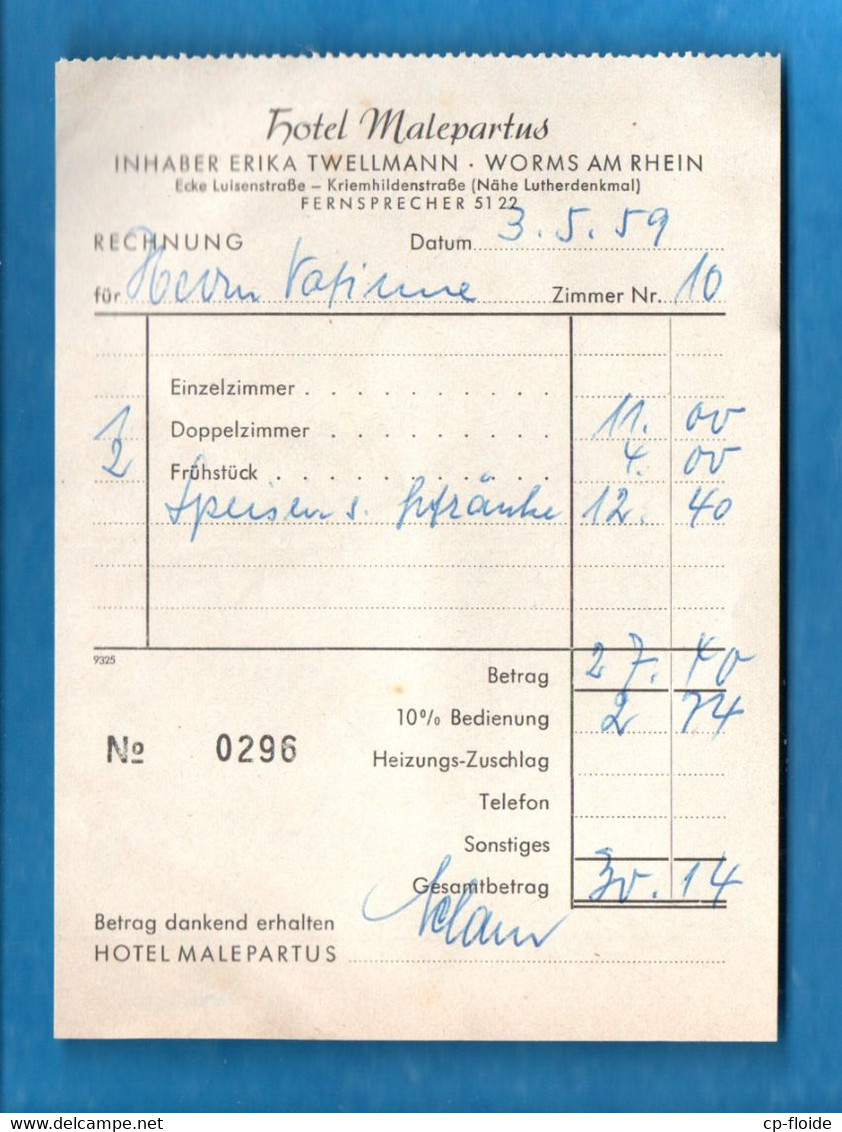 Hotel Malepartus
INHABER ERIKA TWELLMANN · WORMS AM RHEIN
Ecke Luisenstraße – Kriemhildenstraße (Nähe Lutherdenkmal)
FERNSPRECHER 51 22
RECHNUNG Datum 3.5.59
für Herrn Zimmer Nr. 10
Einzelzimmer
1 Doppelzimmer 11. 00
2 Frühstück 4. 00
Speisen 12. 40
9325
Betrag 27. 40
10% Bedienung 2 74
№ 0296
Heizungs-Zuschlag
Telefon
Sonstiges
Gesamtbetrag 30. 14
Betrag dankend erhalten
HOTEL MALEPARTUS
cp-floide